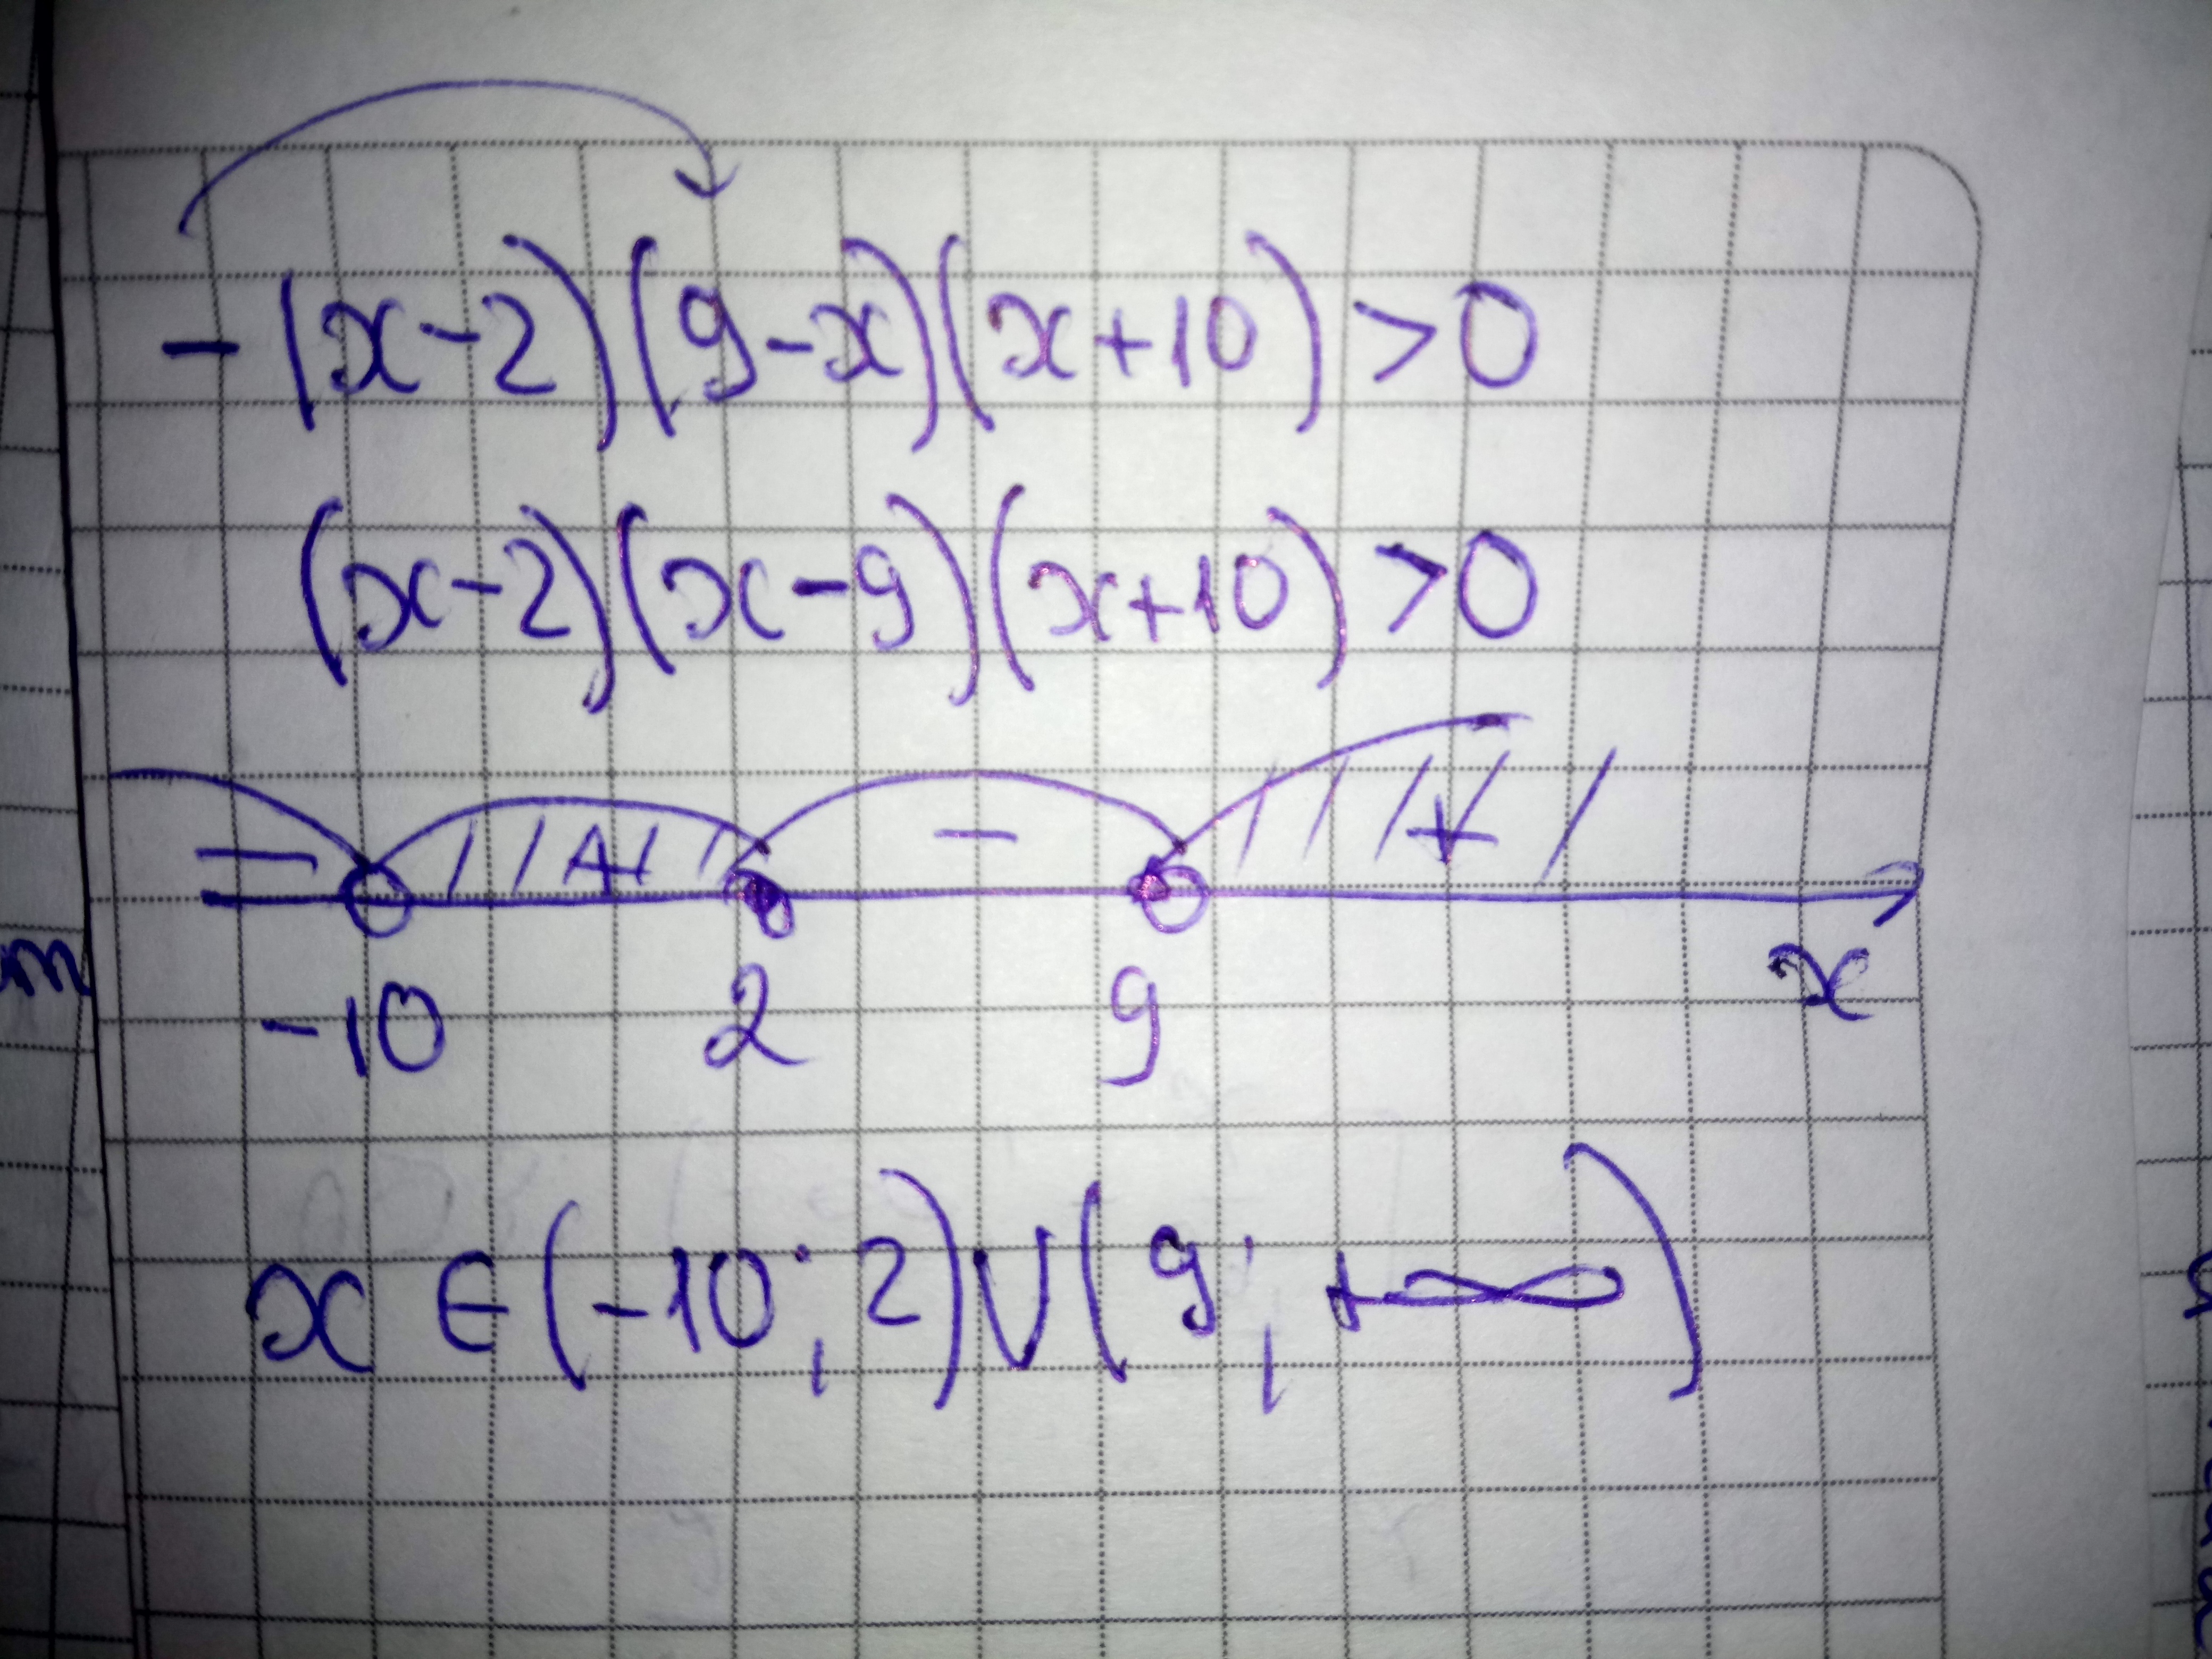 -(x-2)(9-x)(x+10)>0
(x-2)(x-9)(x+10)>0
- + - +
-10 2 9 x
x ∈ (-10; 2) ∪ (9; +∞)